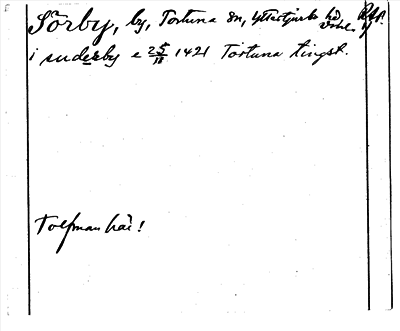 Sörby, by, Tortuna sn, Yttertjurbo hd,
i suderby e 25/11 1421 Tortuna tingst.
Tolfman här!